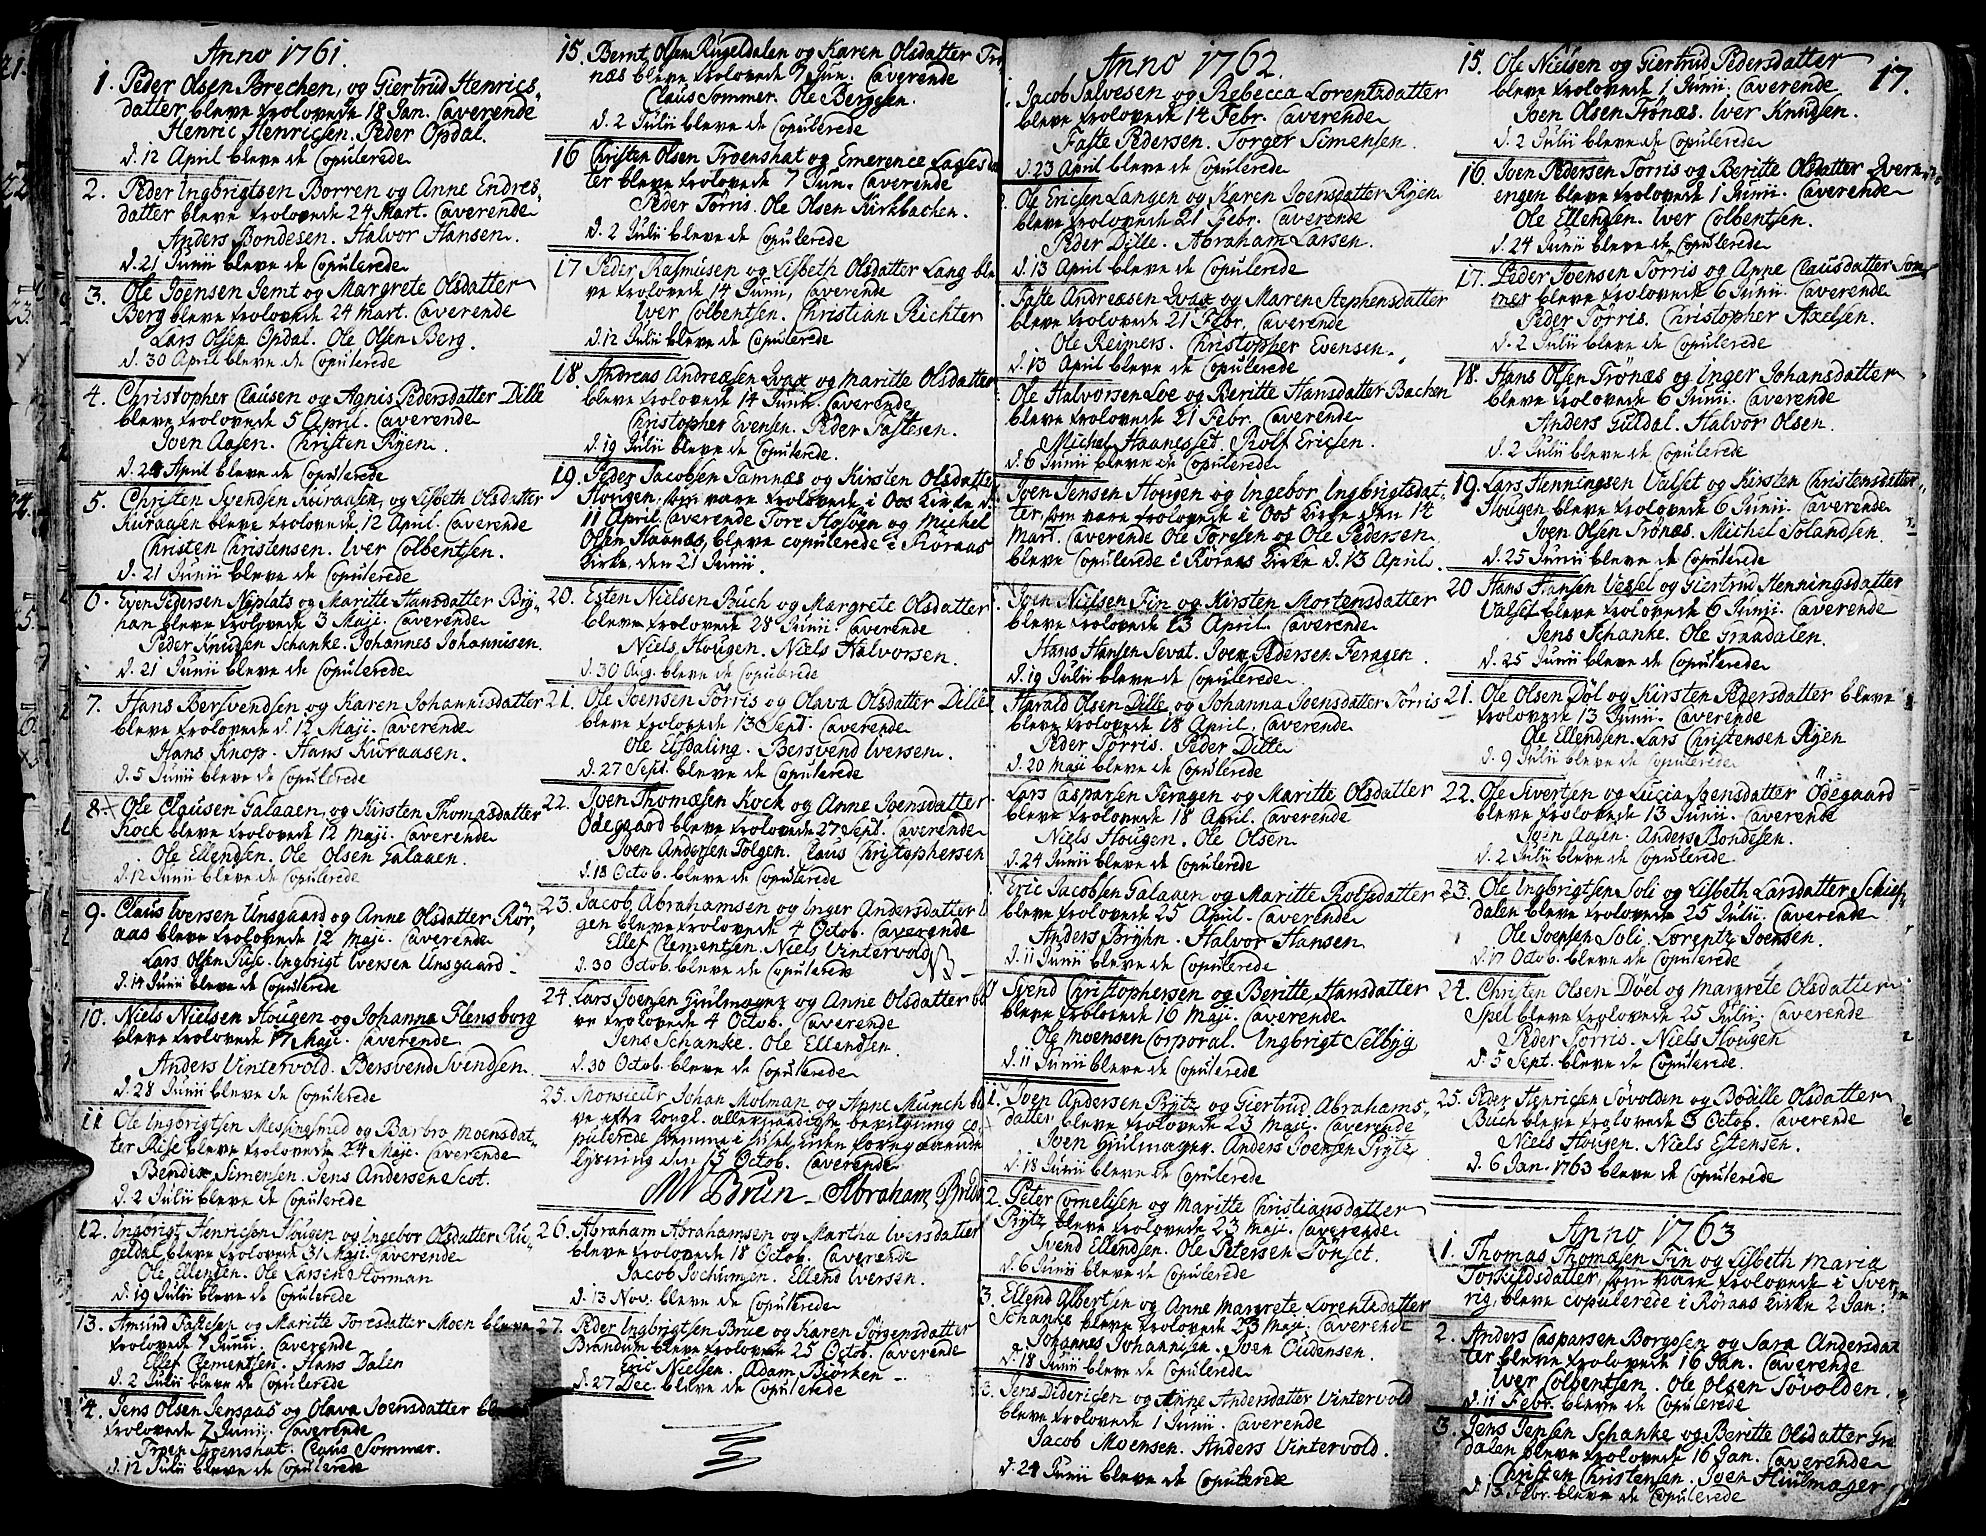 Anno 1761.
1. Peder Olsen Brechen, og Giertrud Henrics-
datter bleve trolovede 18 Jan. Caverende
Henric Henricsen. Peder Opdal.
d. 12 April bleve de Copulerede
2. Peder Ingbrigtsen Borren og Anne Endres-
datter bleve trolovede 24 Mart. Caverende
Anders Bondesen. Halvor Hansen.
d. 21 Junii bleve de Copulerede
3. Ole Joensen Jemt og Margrete Olsdatter
Berg bleve trolovede 24 Mart. Caverende
Lars Olsen Opdal. Ole Olsen Berg.
d. 30 April bleve de Copulerede
4. Christopher Clausen og Agnis Pedersdatter Dille
bleve trolovede 5 April. Caverende
Joen Aasen. Christen Ryen.
d. 24 April bleve de Copulerede
5. Christen Svendsen Kuraasen, og Lisbeth Olsdatter
Kuraasen bleve trolovede 12 April. Caverende
Christen Christensen. Iver Colbentsen.
d. 21 Junii bleve de Copulerede
6. Even Pedersen Nyplats og Maritte Hansdatter Bry-
han bleve trolovede 3 Maji. Caverende
Peder Knudsen Schanke. Johannes Johannisen.
d. 21 Junii bleve de Copulerede
7. Hans Bersvendsen og Karen Johannisdatter
bleve trolovede d. 12 Maji. Caverende
Hans Knop. Hans Kuraasen.
d. 5 Junii bleve de Copulerede
8. Ole Clausen Galaaen, og Kirsten Thomasdatter
Kock bleve trolovede 12 Maji. Caverende
Ole Ellendsen. Ole Olsen Galaaen.
d. 12 Junii bleve de Copulerede
9. Claus Iversen Unsgaard og Anne Olsdatter Rör-
aas bleve trolovede 12 Maji. Caverende
Lars Olsen Riise. Ingbrigt Iversen Unsgaard
d. 14 Junii bleve de Copulerede
10. Niels Nielsen Hougen og Johanna Flensborg
bleve trolovede 17 Maji. Caverende
Anders Vintervold. Bersvend Svendsen.
d. 28 Junii bleve de Copulerede
11 Ole Ingbrigtsen Messingsmed og Barbro Moensdat-
ter Riise bleve trolovede 24 Maji. Caverende
Bendix Simensen. Jens Andersen Scot.
d. 2 Julii bleve de Copulerede
12. Ingbrigt Henricsen Hougen og Ingebor Olsdatter Ru-
geldal bleve trolovede 31 Maji. Caverende
Ole Ellensen. Ole Larsen Storman
d. 19 Julii bleve de Copulerede
13. Amund Fastesen og Maritte Toresdatter Moen bleve
trolovede 7 Junii. Caverende
Ellef Clementsen. Hans Dalen
d. 2 Julii bleve de Copulerede
14. Jens Olsen Jensaas og Olava Joensdatter bleve
trolovede 7 Junii. Caverende
Troen Troenshat. Claus Sommer.
d. 12 Julii bleve de Copulerede
15. Bernt Olsen Rugeldalen og Karen Olsdatter Trö-
næs bleve trolovede 7 Jun. Caverende
Claus Sommer. Ole Berggen.
d. 2 Julii bleve de Copulerede
16 Christen Olsen Troenshat og Emerence Laglesdat-
ter bleve trolovede 7 Jun. Caverende
Peder Torris. Ole Olsen Kirkbachen.
d. 2 Julii bleve de Copulerede
17 Peder Rasmusen og Lisbeth Olsdatter Lang ble-
ve trolovede 14 Junii, Caverende
Iver Colbentsen. Christian Richter
d. 12 Julii bleve de Copulerede
18. Andreas Andreasen Qvax og Maritte Olsdatter
bleve trolovede 14 Junii. Caverende
Christopher Evensen. Peder Fastesen.
d. 19 Julii bleve de Copulerede.
19. Peder Jacobsen Tamnæs og Kirsten Olsdatter
Hougen, som vare trolovede i Oos Kirke d.
11 April Caverende Tore Hosöen og Michel
Olsen Haanæs, bleve copulerede i Röraas
Kirke, den 21 Junii.
20. Esten Nielsen Buch og Margrete Olsdatter
bleve trolovede 28 Junii. Caverende
Niels Hougen. Niels Halvorsen.
d. 30 Aug. bleve de Copulerede
21. Ole Joensen Torris og Olava Olsdatter Dille
bleve trolovede 13 Sept. Caverende
Ole Elfdaling. Bersvend Iversen.
d. 27 Sept. bleve de Copulerede
22. Joen Thomæsen Kock og Anne Joensdatter
Ödegaard bleve trolovede 27 Sept. Caverende
Joen Andersen Tolgen. Claus Christophersen
d. 18 Octob. bleve de Copulerede
23. Jacob Abrahamsen og Inger Andersdatter
gen bleve trolovede 4 Octob. Caverende
Ellef Clementsen. Niels Vintervold NB
d. 30 Octob. bleve de Copulerede
24. Lars Joensen Hjulmager og Anne Olsdatter ble-
ve trolovede 4 Octob. Caverende
Jens Schanke. Ole Ellendsen.
d. 30 Octob. bleve de Copulerede
25. Monsieur Johan Molman og Anne Munch ble-
ve efter Kongl. allernaadigste bevilgning co-
pulerede hiemme i huset uden foregaaende
lysning den 15 Octob. Caverende
M Brun - Abraham
26. Abraham Abrahamsen og Martha Iversdatter
bleve trolovede 18 Octob. Caverende
Jacob Jochumsen. Ellend Iversen.
d. 13 Nov. bleve de Copulerede
27. Peder Ingbrigtsen Brue og Karen Jörgensdatter
Brandum bleve trolovede 25 Octob. Caverende
Eric Nielsen. Adam Biörken
d. 27 Dec. bleve de Copulerede
Anno 1762.
Jacob Salvesen og Rebecca Lorentsdatter
bleve trolovede 14 Febr. Caverende
Faste Pedersen. Torger Simensen.
d. 23 April bleve de Copulerede
Ole Ericsen Langen og Karen Joensdatter Ryen
bleve trolovede 21 Febr. Caverende
Peder Dille. Abraham Larsen.
d. 13 April bleve de Copulerede
Faste Andreasen Qvax og Maren Stephensdatter
bleve trolovede 21 Febr. Caverende
Ole Reimers. Christopher Evensen.
d. 13 April bleve de Copulerede
Ole Halvorsen Loe og Beritte Hansdatter Bachen
bleve trolovede 21 Febr. Caverende
Michel Haanesset. Rolf Ericsen.
d. 6 Junii bleve de Copulerede
Joen Jensen Hougen og Ingebor Ingbrigtsdat-
ter, som vare trolovede i Oos Kirke den 14
Mart. Caverende Ole Toresen og Ole Pedersen
bleve Copulerede i Röraas Kirke d. 13 April.
Joen Nielsen Fin og Kirsten Mortensdatter
bleve trolovede 13 April. Caverende
Hans Hansen Sevat. Joen Pedersen Feragen
d. 19 Julii bleve de Copulerede
Harald Olsen Dille og Johanna Joensdatter Torris
bleve trolovede 18 April. Caverende
Peder Torris. Peder Dille
d. 20 Maji bleve de Copulerede
Lars Casparsen Feragen og Maritte Olsdatter
bleve trolovede 18 April. Caverende
Niels Hougen. Ole Olsen.
d. 24 Junii bleve de Copulerede
Eric Jacobsen Galaaen og Maritte Rolfsdatter
bleve trolovede 25 April. Caverende
Anders Bryhn. Halvor Hansen
d. 11 Junii bleve de Copulerede
Svend Christophersen og Beritte Hansdatter
bleve trolovede 16 Maji. Caverende
Ole Moensen Corporal. Ingbrigt Selbyg
d. 11 Junii bleve de Copulerede
1. Joen Andersen Prytz og Giertrud Abrahams-
datter bleve trolovede 23 Maji. Caverende
Joen Hjulmager. Anders Joensen Prytz
d. 18 Junii bleve de Copulerede
2. Peter Cornelisen og Maritte Christiansdatter
Prytz bleve trolovede 23 Maji. Caverende
Svend Ellendsen. Ole Petersen Tönset.
d. 6 Junii bleve de Copulerede
3. Ellend Albertsen og Anne Margrete Lorentsdatter
Schanke bleve trolovede 23 Maji. Caverende
Johannes Johannisen. Joen Eudensen.
d. 18 Junii bleve de Copulerede
3. Jens Didericsen og Anne Andersdatter Vintervold
bleve trolovede 1 Junii. Caverende
Jacob Moensen. Anders Vintervold.
d. 24 Junii bleve de Copulerede
17.
15. Ole Nielsen og Giertrud Pedersdatter
bleve trolovede 1 Junii. Caverende
Joen Olsen Trönæs. Iver Knudsen.
d. 2 Julii bleve de Copulerede
16. Joen Pedersen Torris og Beritte Olsdatter Qvern-
engen bleve trolovede 1 Junii. Caverende
Ole Ellendsen. Iver Colbentsen.
d. 24 Junii bleve de Copulerede
17. Peder Joensen Torris og Anne Clausdatter Som-
mer bleve trolovede 6 Junii. Caverende
Peder Torris. Christopher Axelsen.
d. 2 Julii bleve de Copulerede
18. Hans Olsen Trönæs og Inger Johansdatter
bleve trolovede 6 Junii. Caverende
Anders Guldal. Halvor Olsen.
d. 2 Julii bleve de Copulerede
19. Lars Henningsen Valset og Kirsten Christensdatter
Hougen bleve trolovede 6 Junii. Caverende
Joen Olsen Trönæs. Michel Solandsen.
d. 25 Junii bleve de Copulerede
20 Hans Hansen Vessel og Giertrud Henningsdatter
Valset bleve trolovede 6 Junii. Caverende
Jens Schanke. Ole Graadalen.
d. 25 Junii bleve de Copulerede
21. Ole Olsen Döl og Kirsten Pedersdatter bleve
trolovede 13 Junii. Caverende
Ole Ellendsen. Lars Christensen Ryen
d. 9 Julii bleve de Copulerede
22. Ole Sivertsen og Lucia Joensdatter Ödegaard
bleve trolovede 13 Junii. Caverende
Joen Aasen. Anders Bondesen.
d. 2 Julii bleve de Copulerede
23. Ole Ingbrigtsen Soli og Lisbeth Larsdatter Schief-
dalen bleve trolovede 25 Julii. Caverende
Ole Joensen Soli. Lorentz Joensen.
d. 17 Octob. bleve de Copulerede
24. Christen Olsen Döel og Margrete Olsdatter
Spel bleve trolovede 25 Julii. Caverende
Peder Torris. Niels Hougen
d. 5 Sept. bleve de Copulerede
25. Peder Henricsen Sövolden og Bodille Olsdatter
Buch bleve trolovede 3 Octob. Caverende
Niels Hougen. Niels Estensen.
d. 6 Jan. 1763 bleve de Copulerede
Anno 1763
1. Thomas Thomæsen Fin og Lisbeth Maria
Torkildsdatter, som vare trolovede i Sver-
rig, bleve copulerede i Röraas Kirke 2 Jan:
2. Anders Casparsen Borgosen og Sara Andersdat-
ter bleve trolovede 16 Jan. Caverende
Iver Colbentsen. Ole Olsen Sövolden.
d. 11 Febr. bleve de Copulerede
3. Jens Jensen Schanke og Beritte Olsdatter Gra-
dalen bleve trolovede 16 Jan. Caverende
Christen Christensen. Joen Hiulmager
d. 13 Febr. bleve de Copulerede